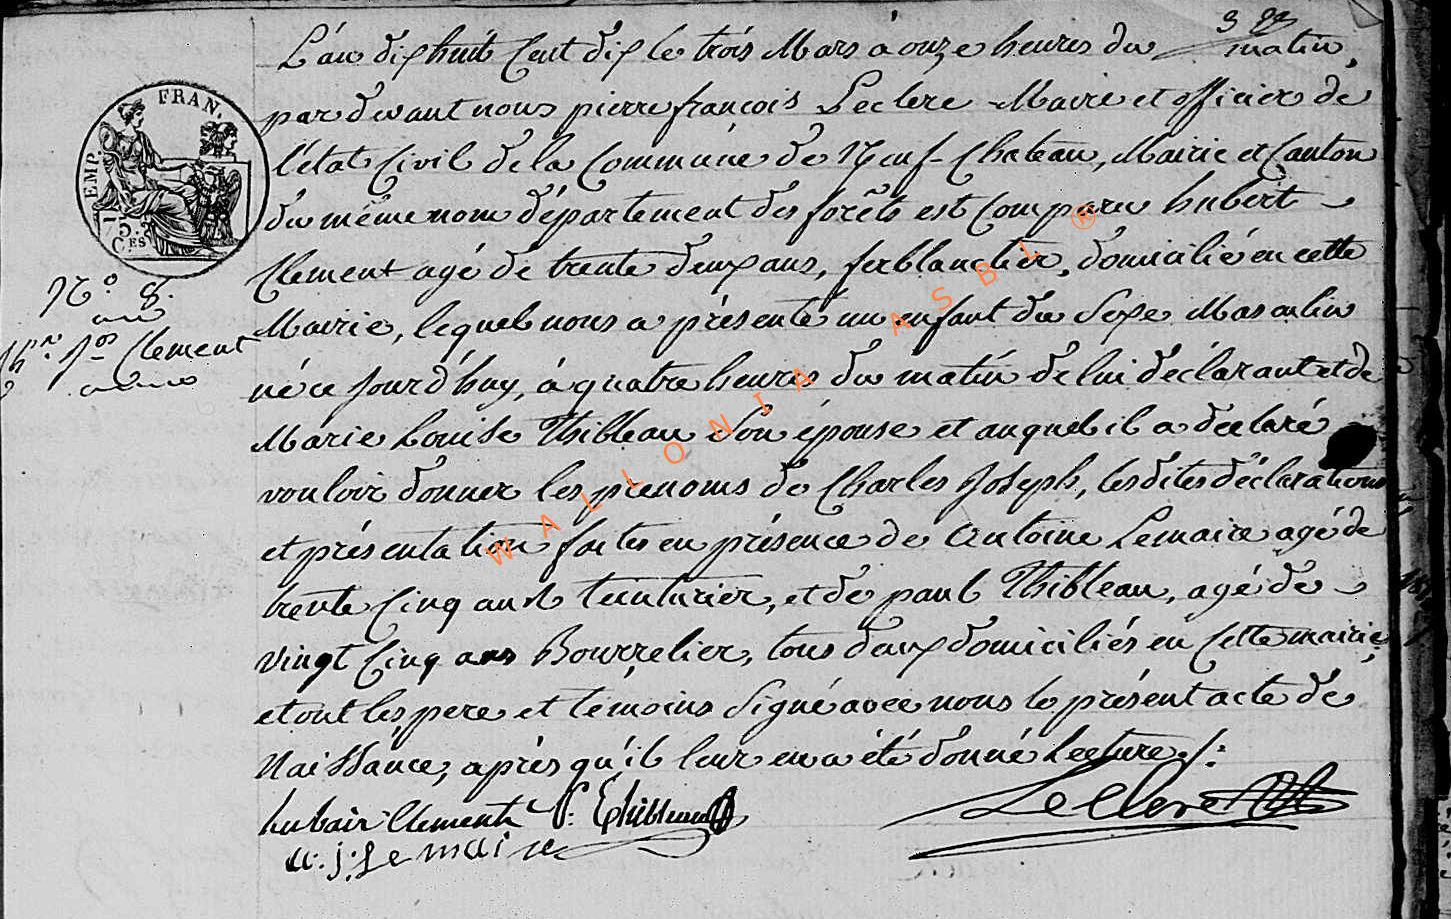 3 
L'an dix huit Cent dix le trois Mars à onze heures du matin,
par devant nous pierre françois Leclere Maire et officier de
l'état Civil de la Commune de Neuf-Chateau, Mairie et Canton
du même nom département des forêts est Comparu hubert
Clement agé de trente deux ans, ferblantier, domicilié en cette
Mairie, lequel nous a présenté un enfant du Sexe Masculin
né ce Jourd'huy, à quatre heures du matin de lui déclarant et de
Marie Louise Thibleau Son épouse et auquel il a declaré
vouloir donner les prenoms de Charles Joseph, les dites déclarations
et présentation faites en présence de Antoine Lemaire agé de
trente Cinq ans teinturier, et de paul Thibleau, agé de
vingt Cinq ans Bourrelier, tous deux domiciliés en Cette mairie,
et ont les pere et témoins Signé avec nous le présent acte de
Naissance, après qu'il leur en a été donné Lecture
FRAN.
EMP.
75.
C.ES
N.° 8.
J.os Clement
hubair Clement P: Thibleau
Leclere
a: j: Lemaire
WALLONIA ASBL ®